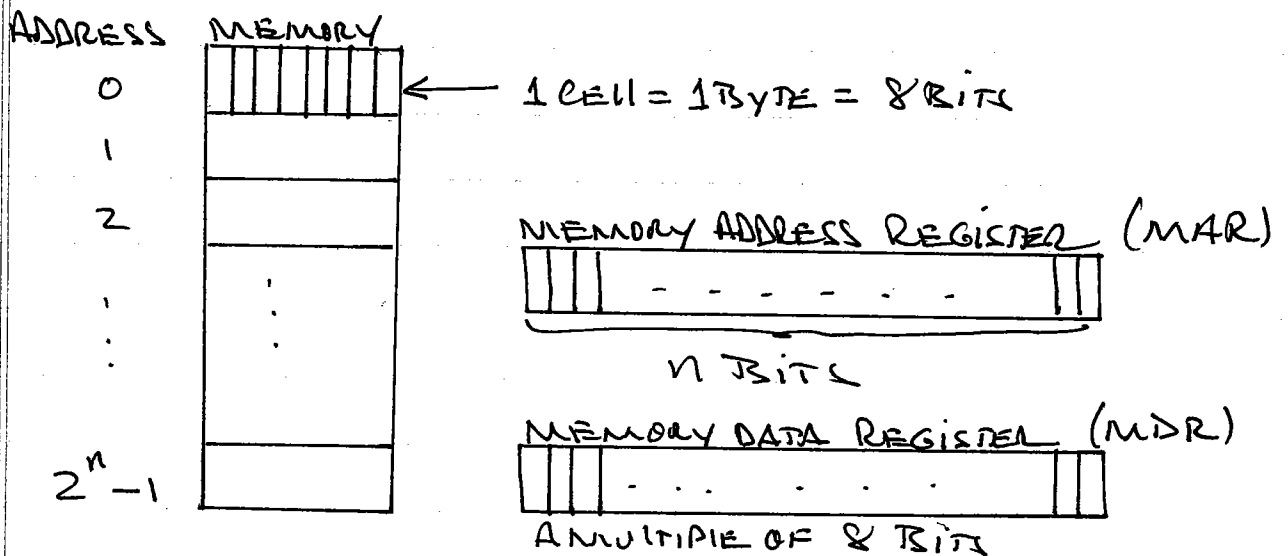 ADDRESS MEMORY
0
1 CELL = 1 BYTE = 8 BITS
1
2
MEMORY ADDRESS REGISTER (MAR)
n BITS
MEMORY DATA REGISTER (MDR)
2^n - 1
A MULTIPLE OF 8 BITS